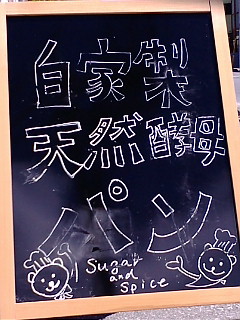 自家製
天然酵母
パン
Sugar
and
Spice